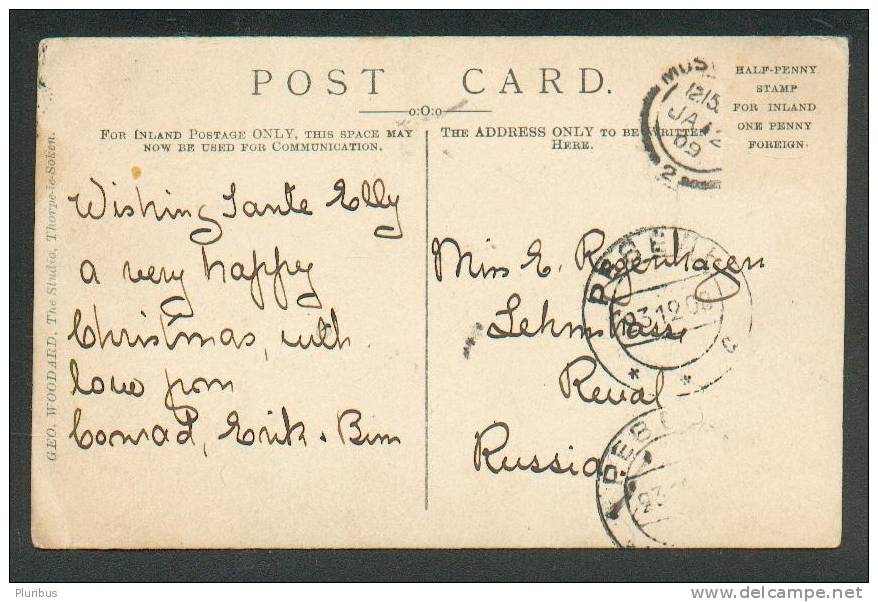 POST CARD.
o:O:o
FOR INLAND POSTAGE ONLY, THIS SPACE MAY
NOW BE USED FOR COMMUNICATION.
THE ADDRESS ONLY TO BE WRITTEN
HERE.
HALF-PENNY
STAMP
FOR INLAND
ONE PENNY
FOREIGN.
MUS
12 15
JA 12
09
2
Wishing Tante Elly
a very happy
Christmas, with
love from
Conrad, Erik + Bim
Miss E. Rogenhagen
Lehmstrasse
Reval
Russia
РЕВЕЛЬ
23 12 08
С
РЕВЕЛ
23
GEO. WOODARD, The Studio, Thorpe-le-Soken.
Pluribus
www.delcampe.net